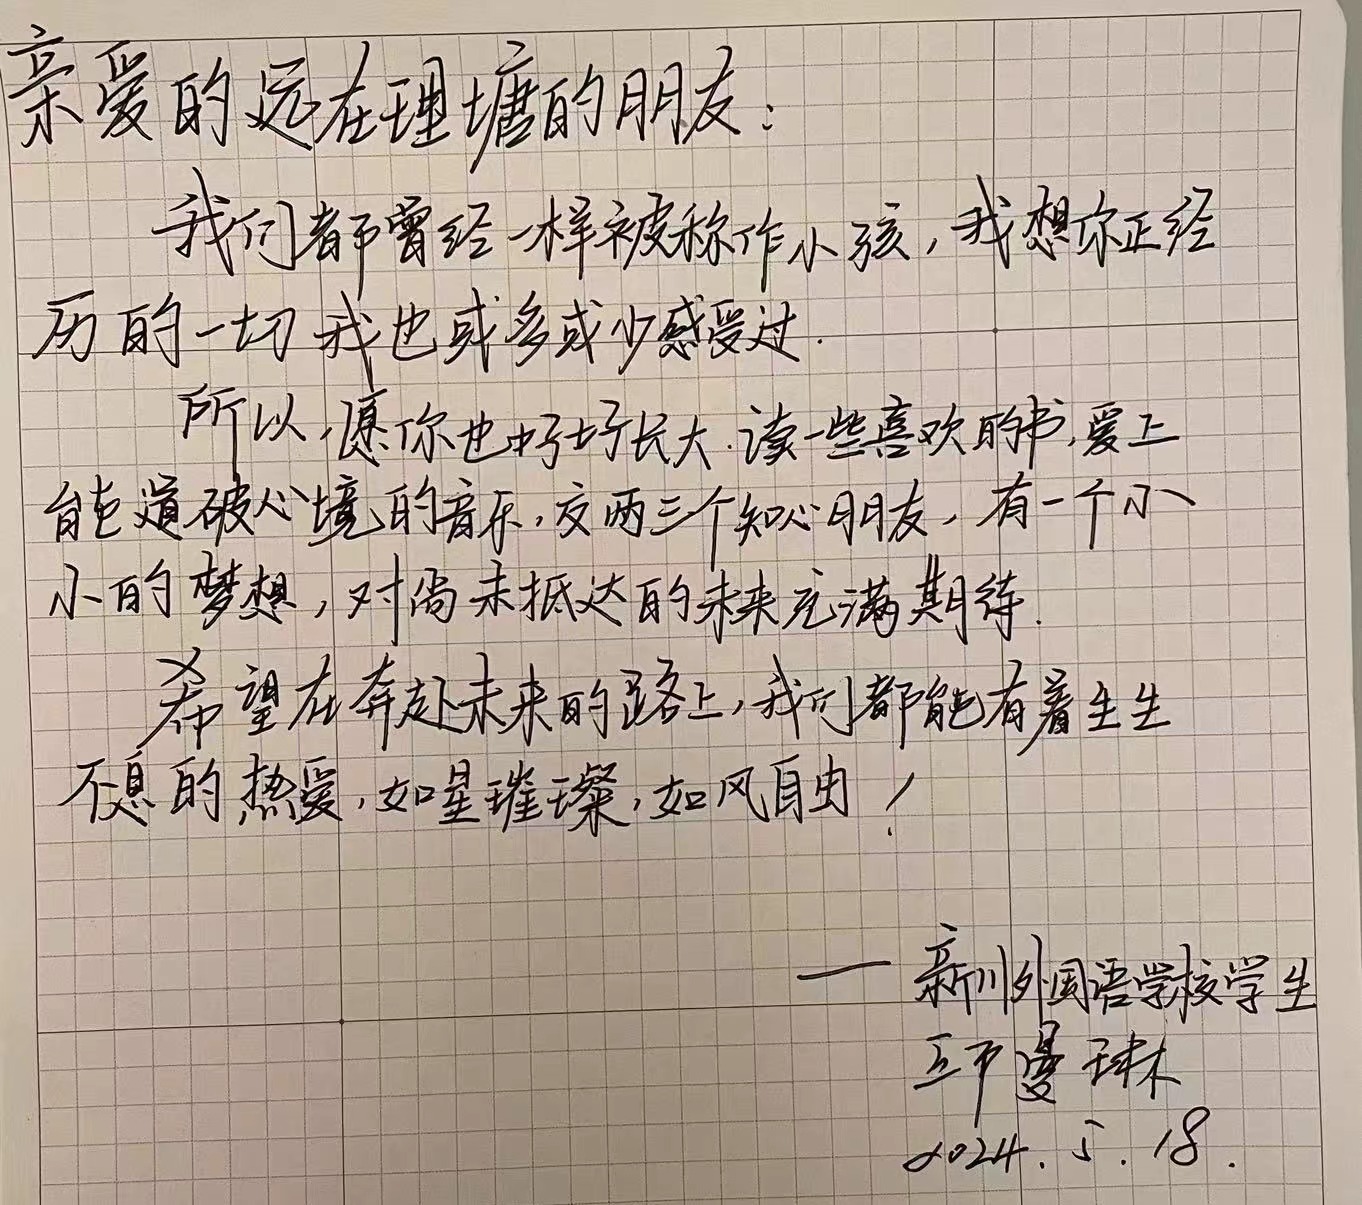 亲爱的远在理塘的朋友:
我们都曾经一样被称作小孩,我想你正经
历的一切我也或多或少感受过.
所以,愿你也好好长大.读一些喜欢的书,爱上
能道破心境的音乐,交两三个知心朋友,有一个小
小的梦想,对尚未抵达的未来充满期待.
希望在奔赴未来的路上,我们都能有着生生
不息的热爱,如星璀璨,如风自由!
——新川外国语学校学生
曼琳
2024.5.18.